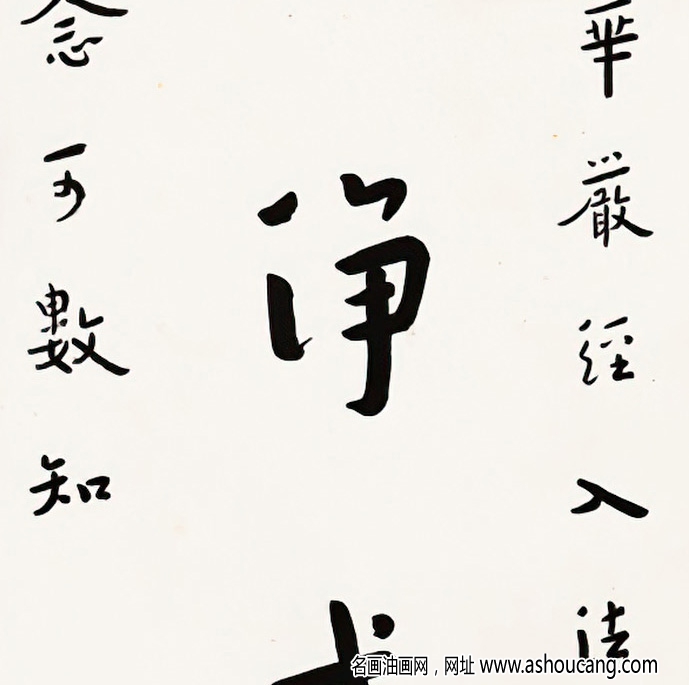 華嚴經入法
淨
念可數知
名画油画网，网址 www.ashoucang.com